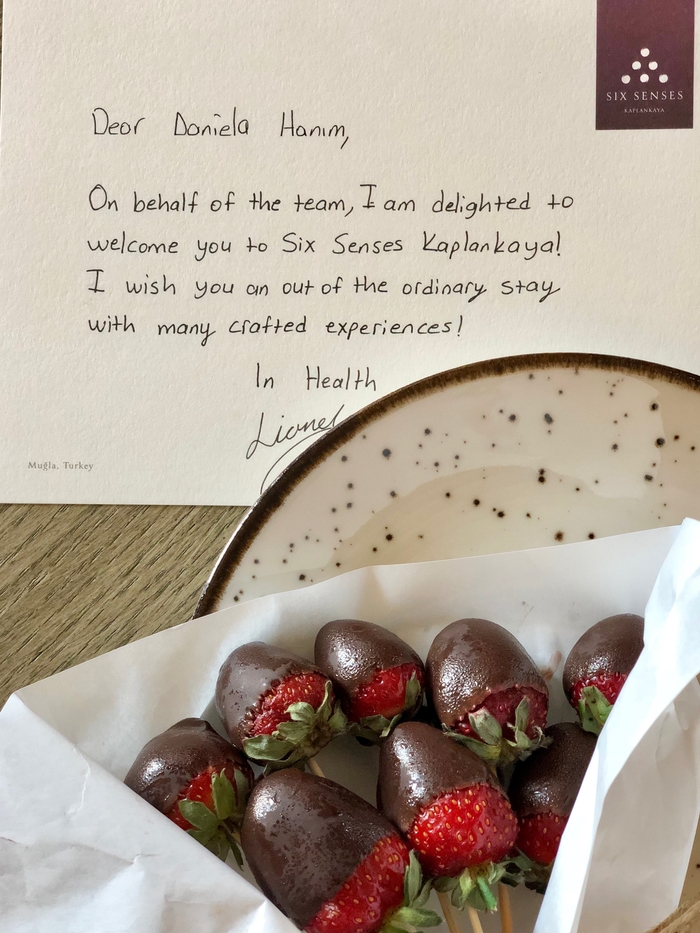 SIX SENSES
KAPLANKAYA
Dear Daniela Hanım,
On behalf of the team, I am delighted to
welcome you to Six Senses Kaplankaya!
I wish you an out of the ordinary stay
with many crafted experiences!
In Health
Lionel
Muğla, Turkey